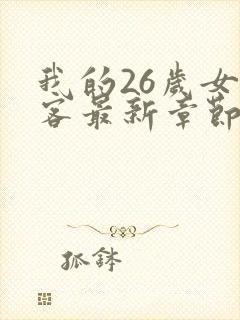 我的26歲女
客最新章節
狐鉢